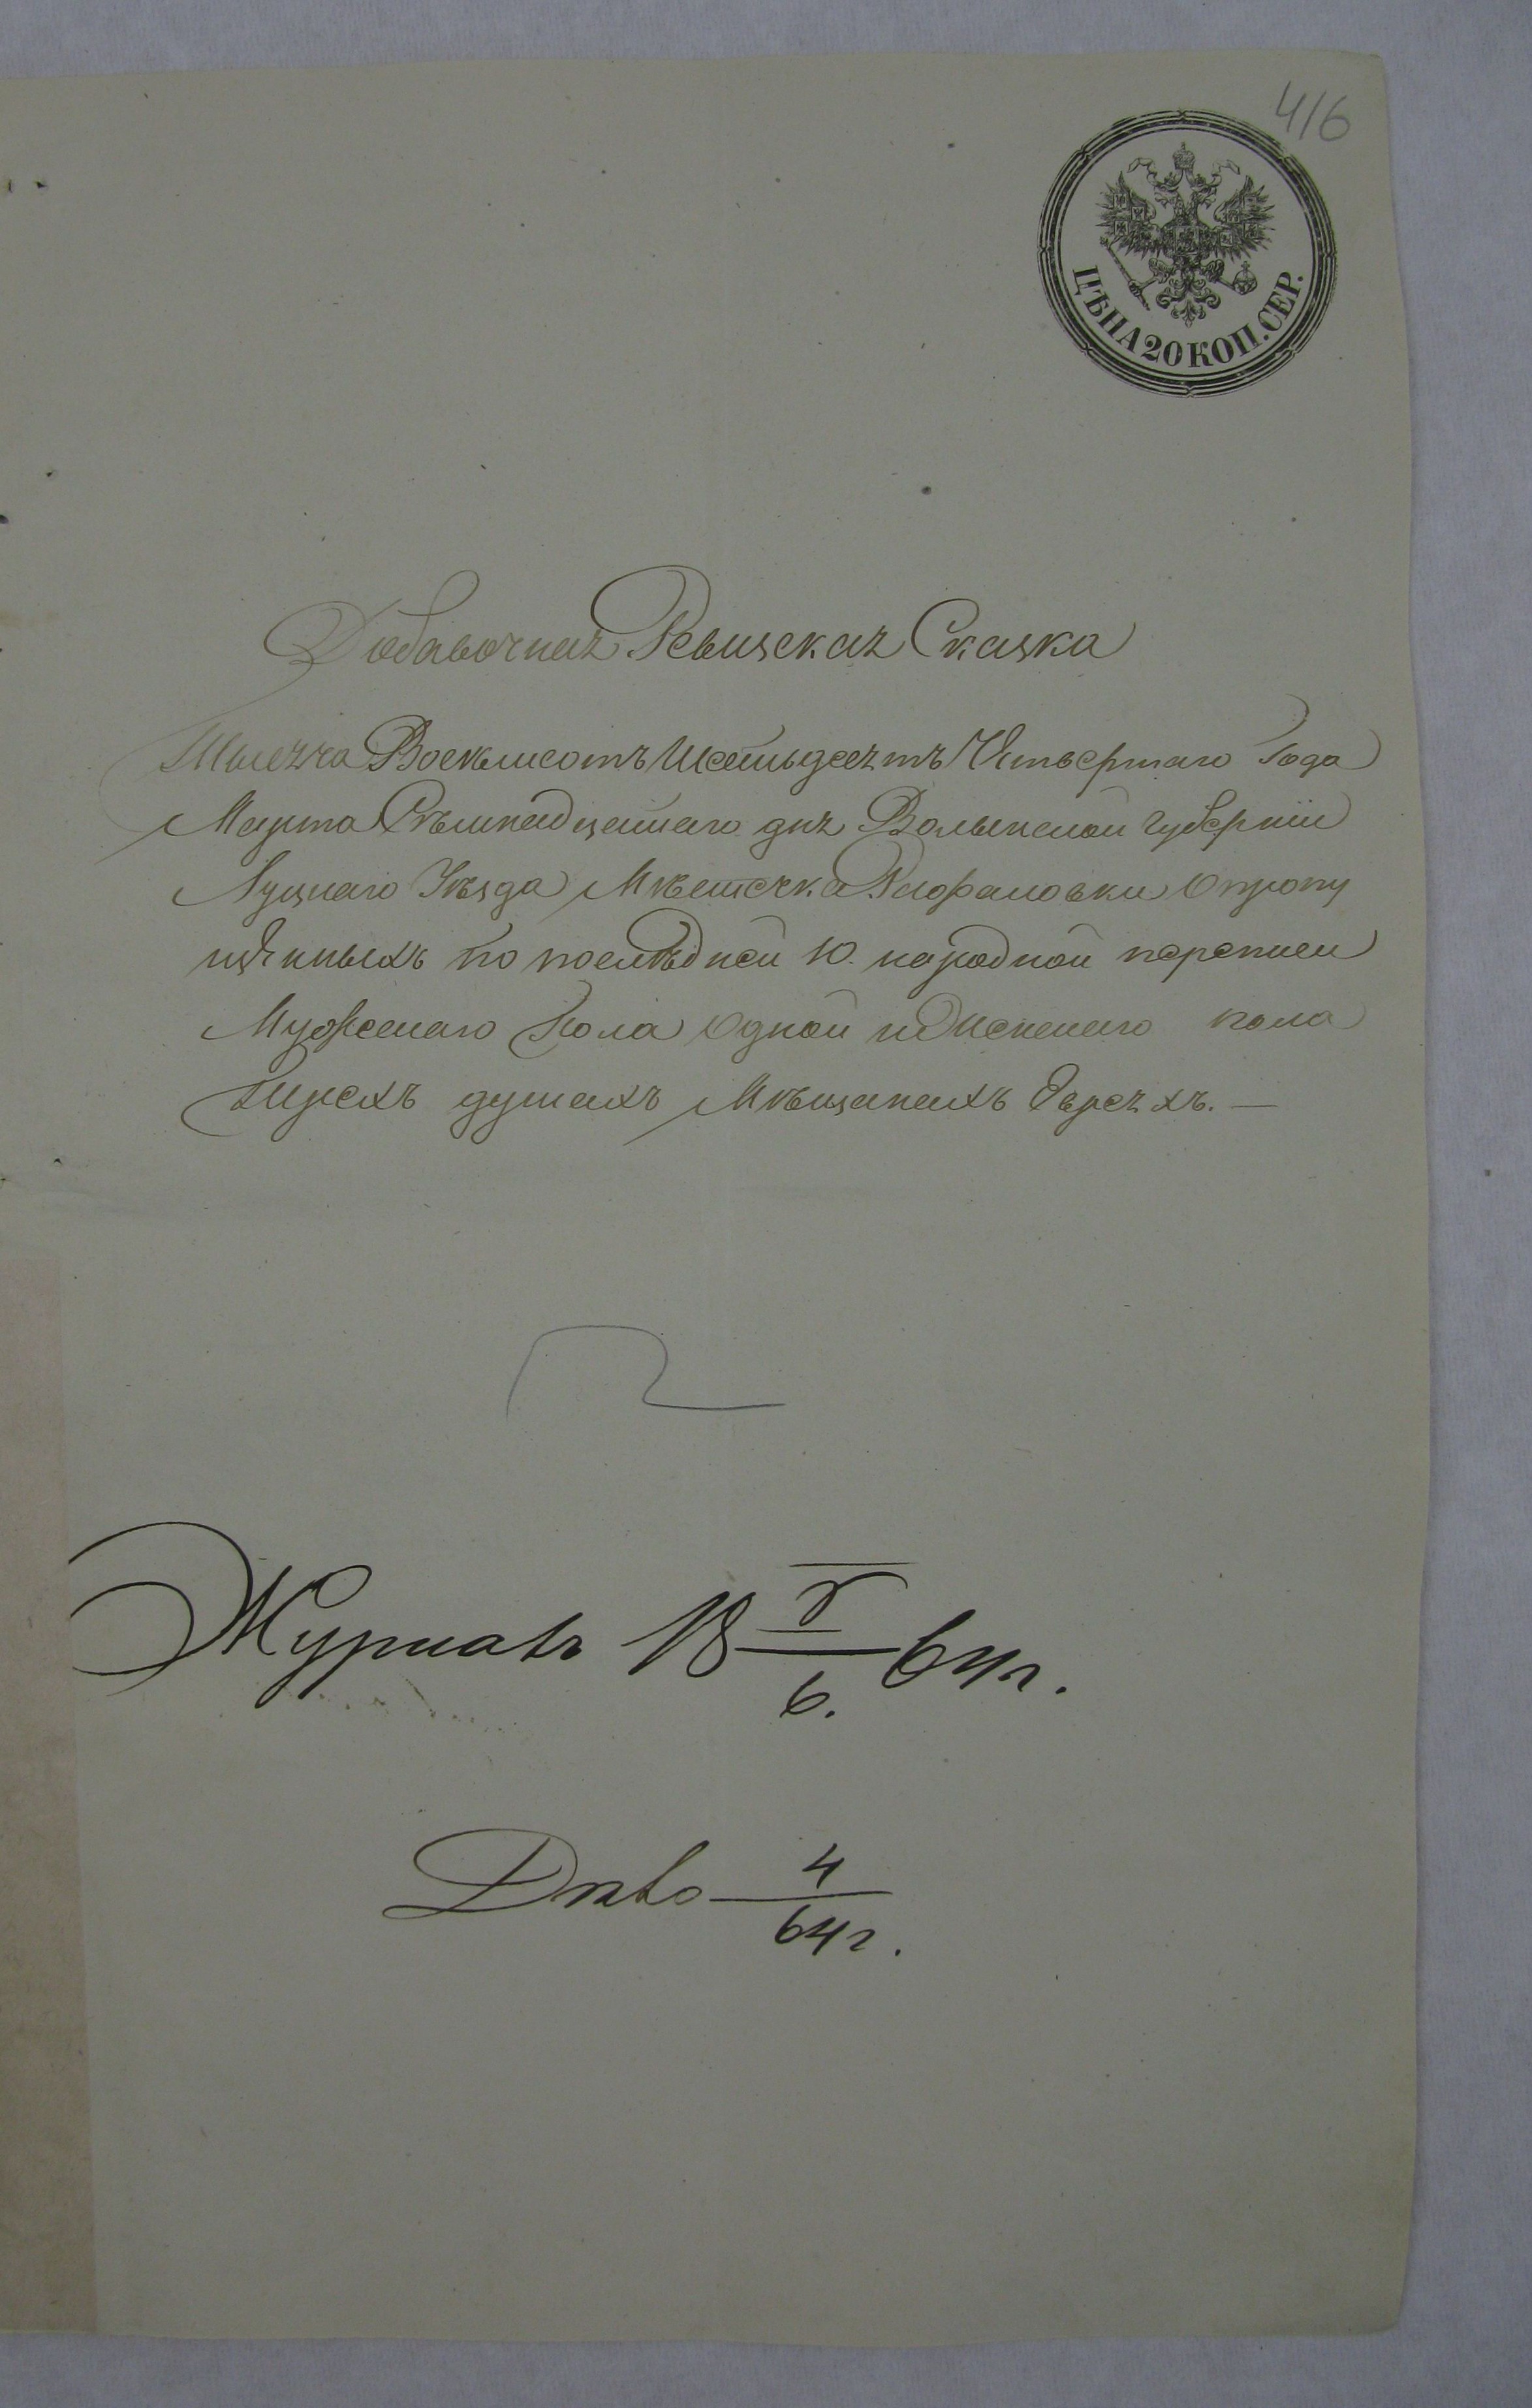 416
ЦѢНА 20 КОП. СЕР.
Добавочная Ревизская Сказка
Тысяча Восемьсотъ Шестьдесятъ Четвертаго Года
Марта дня Волынской Губерніи
Луцкаго Уѣзда Мѣстечка Рафаловки О пропу
щенныхъ по послѣдней 10. народной переписи
Мужескаго Пола Одной и Женскаго пола
Трехъ душахъ Мѣщанахъ Евреяхъ. —
Журналъ 18 V/6. 64 г.
Дѣло 4/64 г.